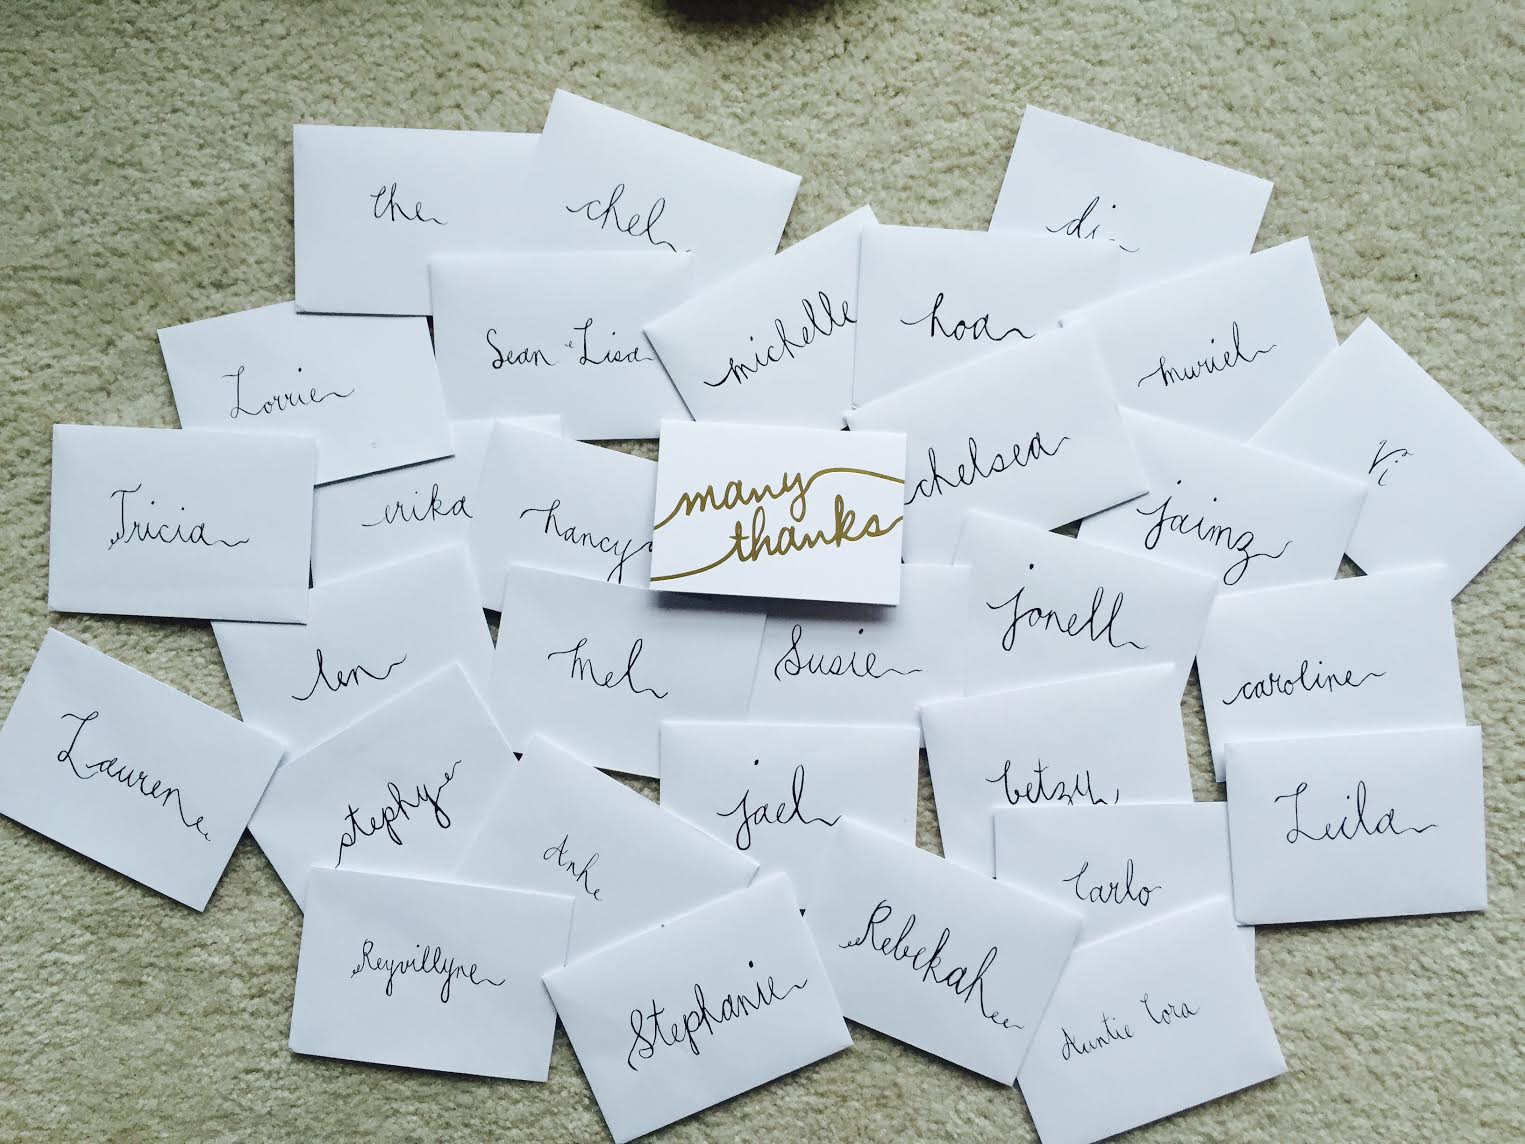 the
chel
di
Sean & Lisa
michelle
hoa
muriel
Lorrie
Vi
Tricia
erika
nancy
many
thanks
chelsea
jaimz
len
mel
Susie
jonell
caroline
Lauren
stephy
Anh
jael
betzy
Carlo
Leila
Reyvillyne
Stephanie
Rebekah
Auntie Cora